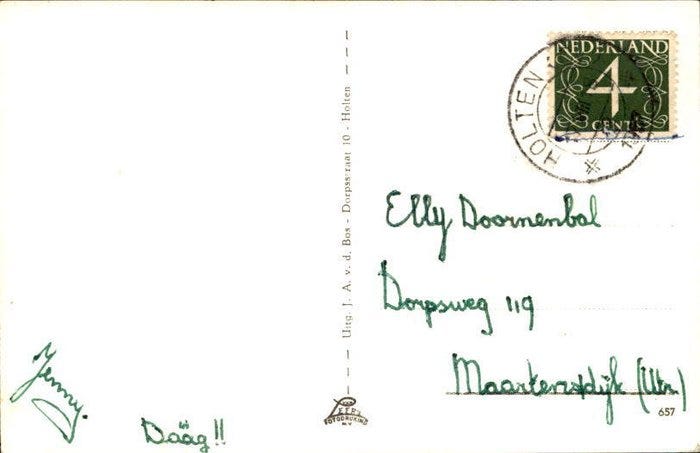 Jenny.
Dääg!!
Uitg. J. A. v. d. Bos - Dorpsstraat 10 - Holten
FOTODRUKKERIJ
N.V.
NEDERLAND
4
CENT
HOLTEN
Elly Doornenbal
Dorpsweg 119
Maartensdijk (Utr.)
657